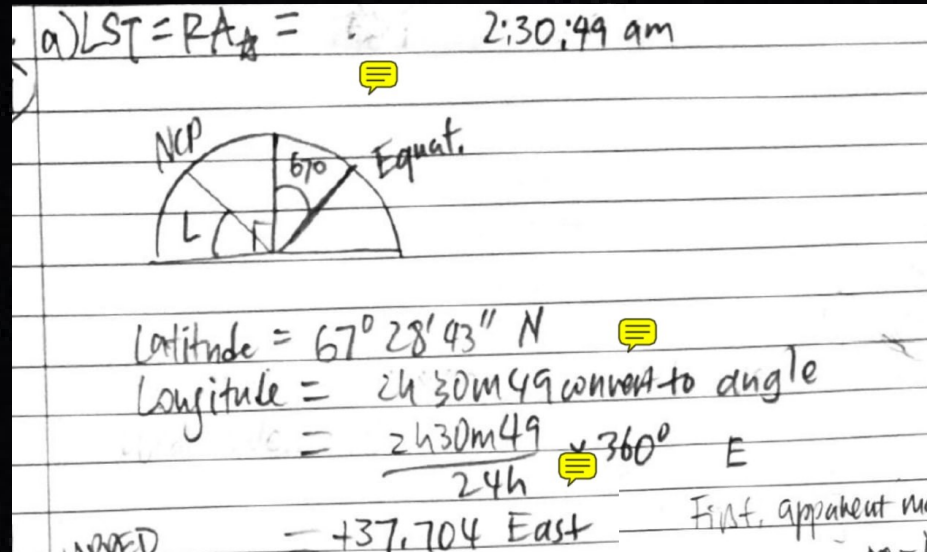 a) LST = RA☆ = 2:30:49 am
NCP
67°
Equat.
L
Latitude = 67° 28' 43" N
Longitude = 2h 30m 49 convert to angle
= 2h30m49 / 24h × 360° E
= +37.704 East
First, apparent